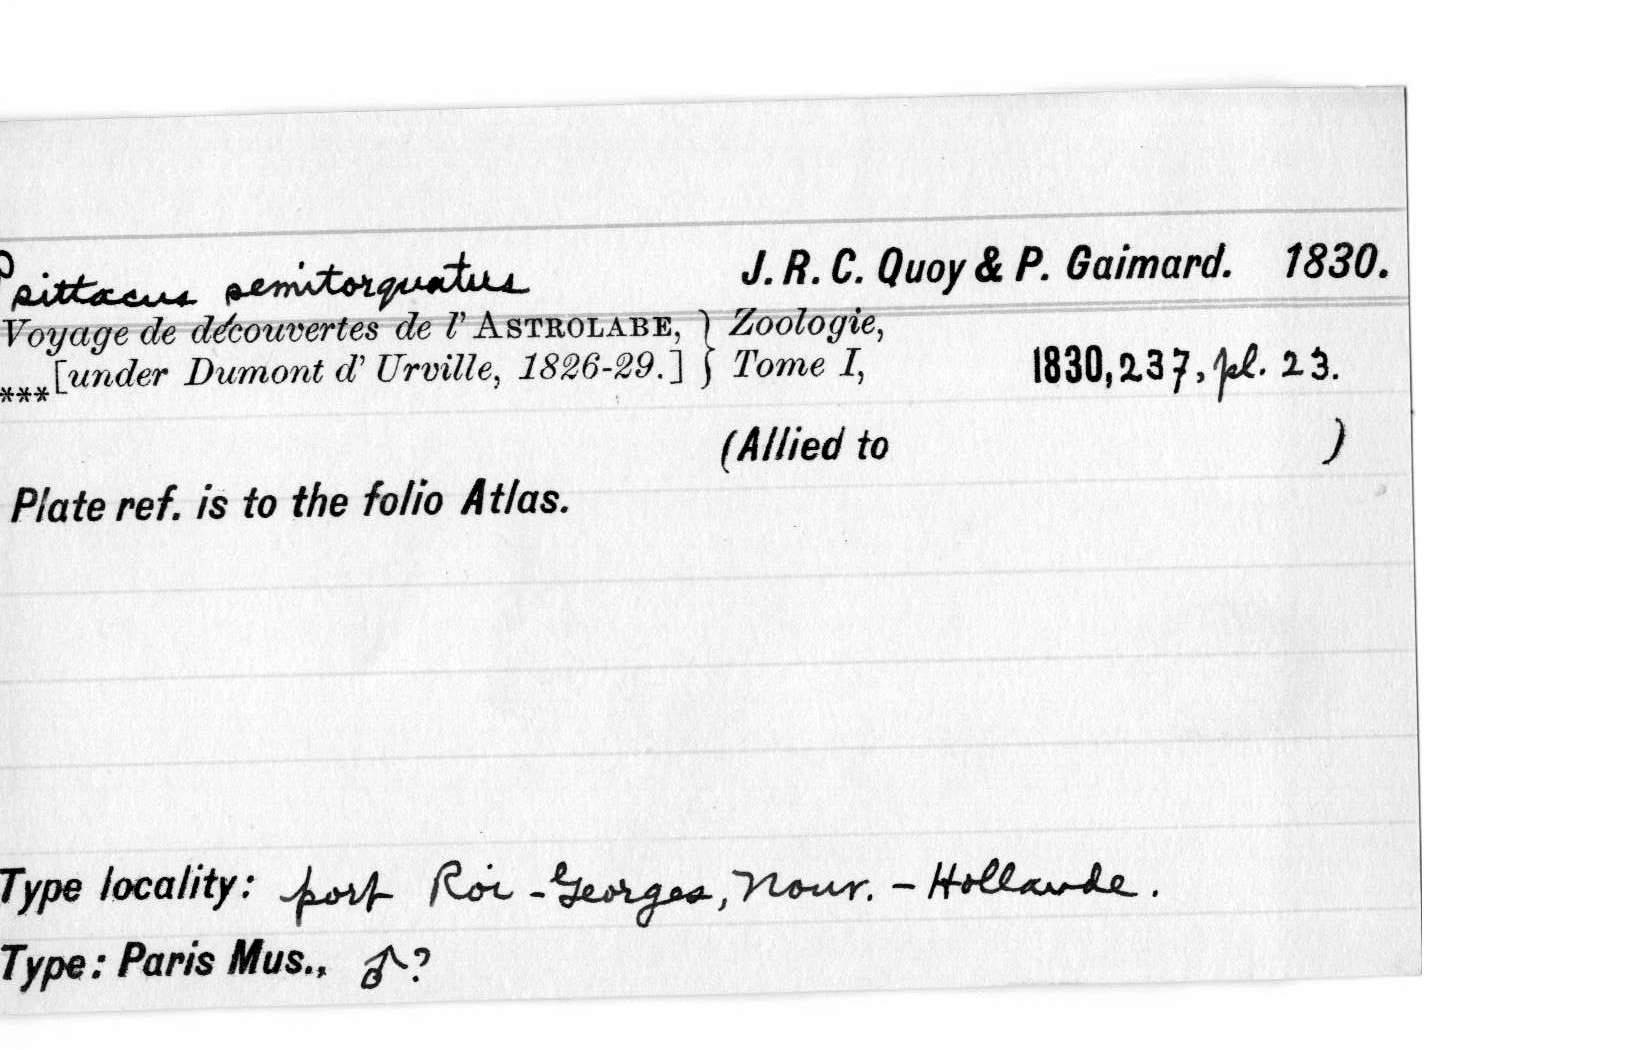 Psittacus semitorquatus J. R. C. Quoy & P. Gaimard. 1830.
Voyage de découvertes de l' ASTROLABE, } Zoologie,
***[under Dumont d' Urville, 1826-29.] } Tome I, 1830, 237, pl. 23.
(Allied to )
Plate ref. is to the folio Atlas.
Type locality: port Roi-Georges, Nouv.-Hollande.
Type: Paris Mus., ♂?